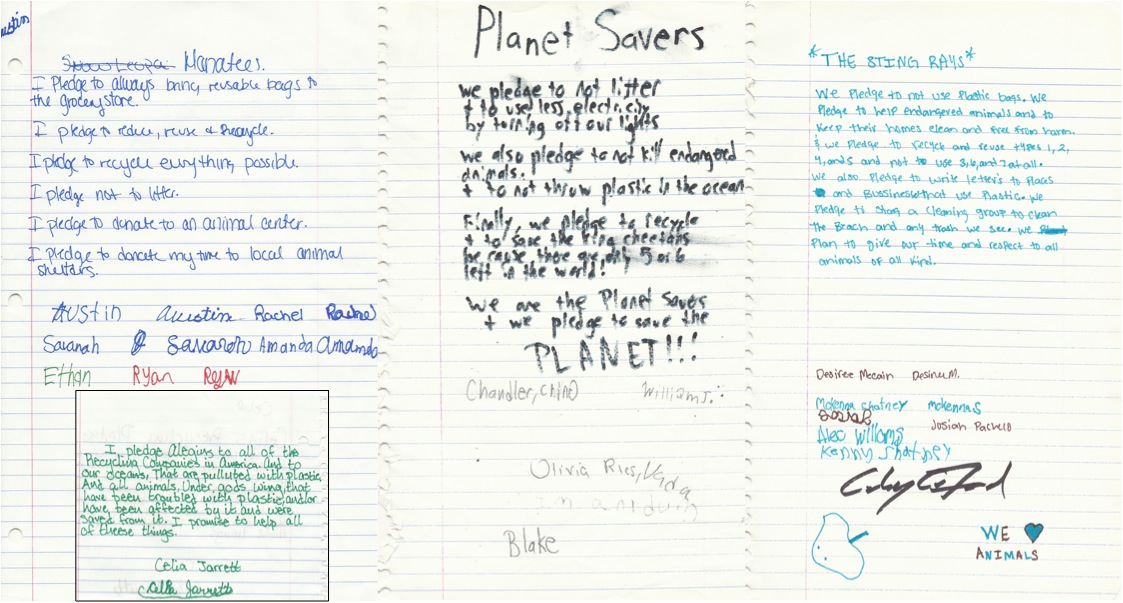 Austin
Manatees.
I Pledge to always bring reusable bags to
the grocery store.
I pledge to reduce, reuse & Recycle.
I pledge to recycle everything possible.
I pledge not to litter.
I pledge to donate to an animal center.
I pledge to donate my time to local animal
shelters.
Austin Austin Rachel Rachel
Savanah Savanah Amanda Amanda
Ethan Ryan Ryan
I pledge Alegins to all of the
Recycling Companies in America. And to
our oceans, That are pulluted with plastic,
And all animals. Under gods wing, that
have been troubled with plastic, and/or
have been affected by it and were
saved from it. I promise to help all
of theese things.
Celia Jarrett
Celia Jarrett
Planet Savers
we pledge to not litter
+ to use less electricity
by torning off our lights
we also pledge to not kill endangered
animals.
+ to not throw plastic in the ocean
Finally, we pledge to recycle
+ to save the king cheetahs
because there are only 5 or 6
left in the world!
We are the Planet Savers
+ we pledge to save the
PLANET!!!
Chandler, William J.
Olivia Rios,
Blake
*THE STING RAYS*
We Pledge to not use Plastic bags. We
Pledge to help Endangered animals and to
Keep their homes clean and free from harm.
& we Pledge to recycle and reuse types 1, 2,
4, and 5 and not to use 3, 6, and 7 at all.
We also Pledge to write letter's to Places
and Bussinesse that use Plastic. We
Pledge to start a cleaning group to clean
the Beach and any trash we see. We
Plan to give our time and respect to all
animals of all kind.
Desiree Mccain Desiree M.
Mckenna Shatney mckenna S
Josiah Pacheco
Alec Williams
Kenny Shatney
WE
ANIMALS